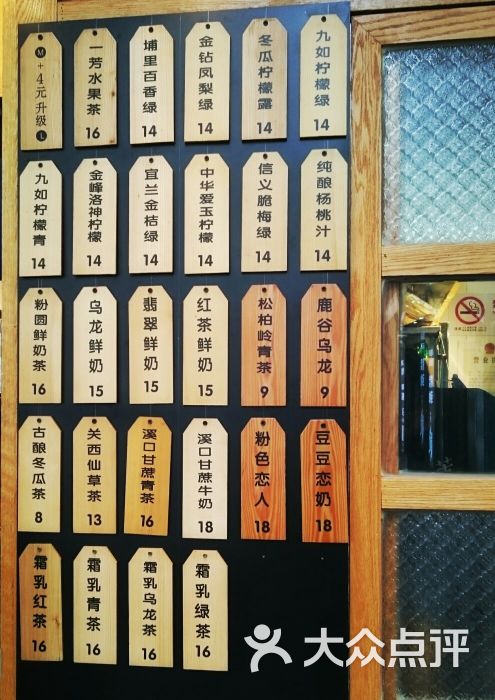 M + 4元升级 L
一芳水果茶 16
埔里百香绿 14
金钻凤梨绿 14
冬瓜柠檬露 14
九如柠檬绿 14
九如柠檬青 14
金峰洛神柠檬 14
宜兰金桔绿 14
中华爱玉柠檬 14
信义脆梅绿 14
纯酿杨桃汁 14
粉圆鲜奶茶 16
乌龙鲜奶 15
翡翠鲜奶 15
红茶鲜奶 15
松柏岭青茶 9
鹿谷乌龙 9
古酿冬瓜茶 8
关西仙草茶 13
溪口甘蔗青茶 16
溪口甘蔗牛奶 18
粉色恋人 18
豆豆恋奶 18
霜乳红茶 16
霜乳青茶 16
霜乳乌龙茶 16
霜乳绿茶 16
大众点评